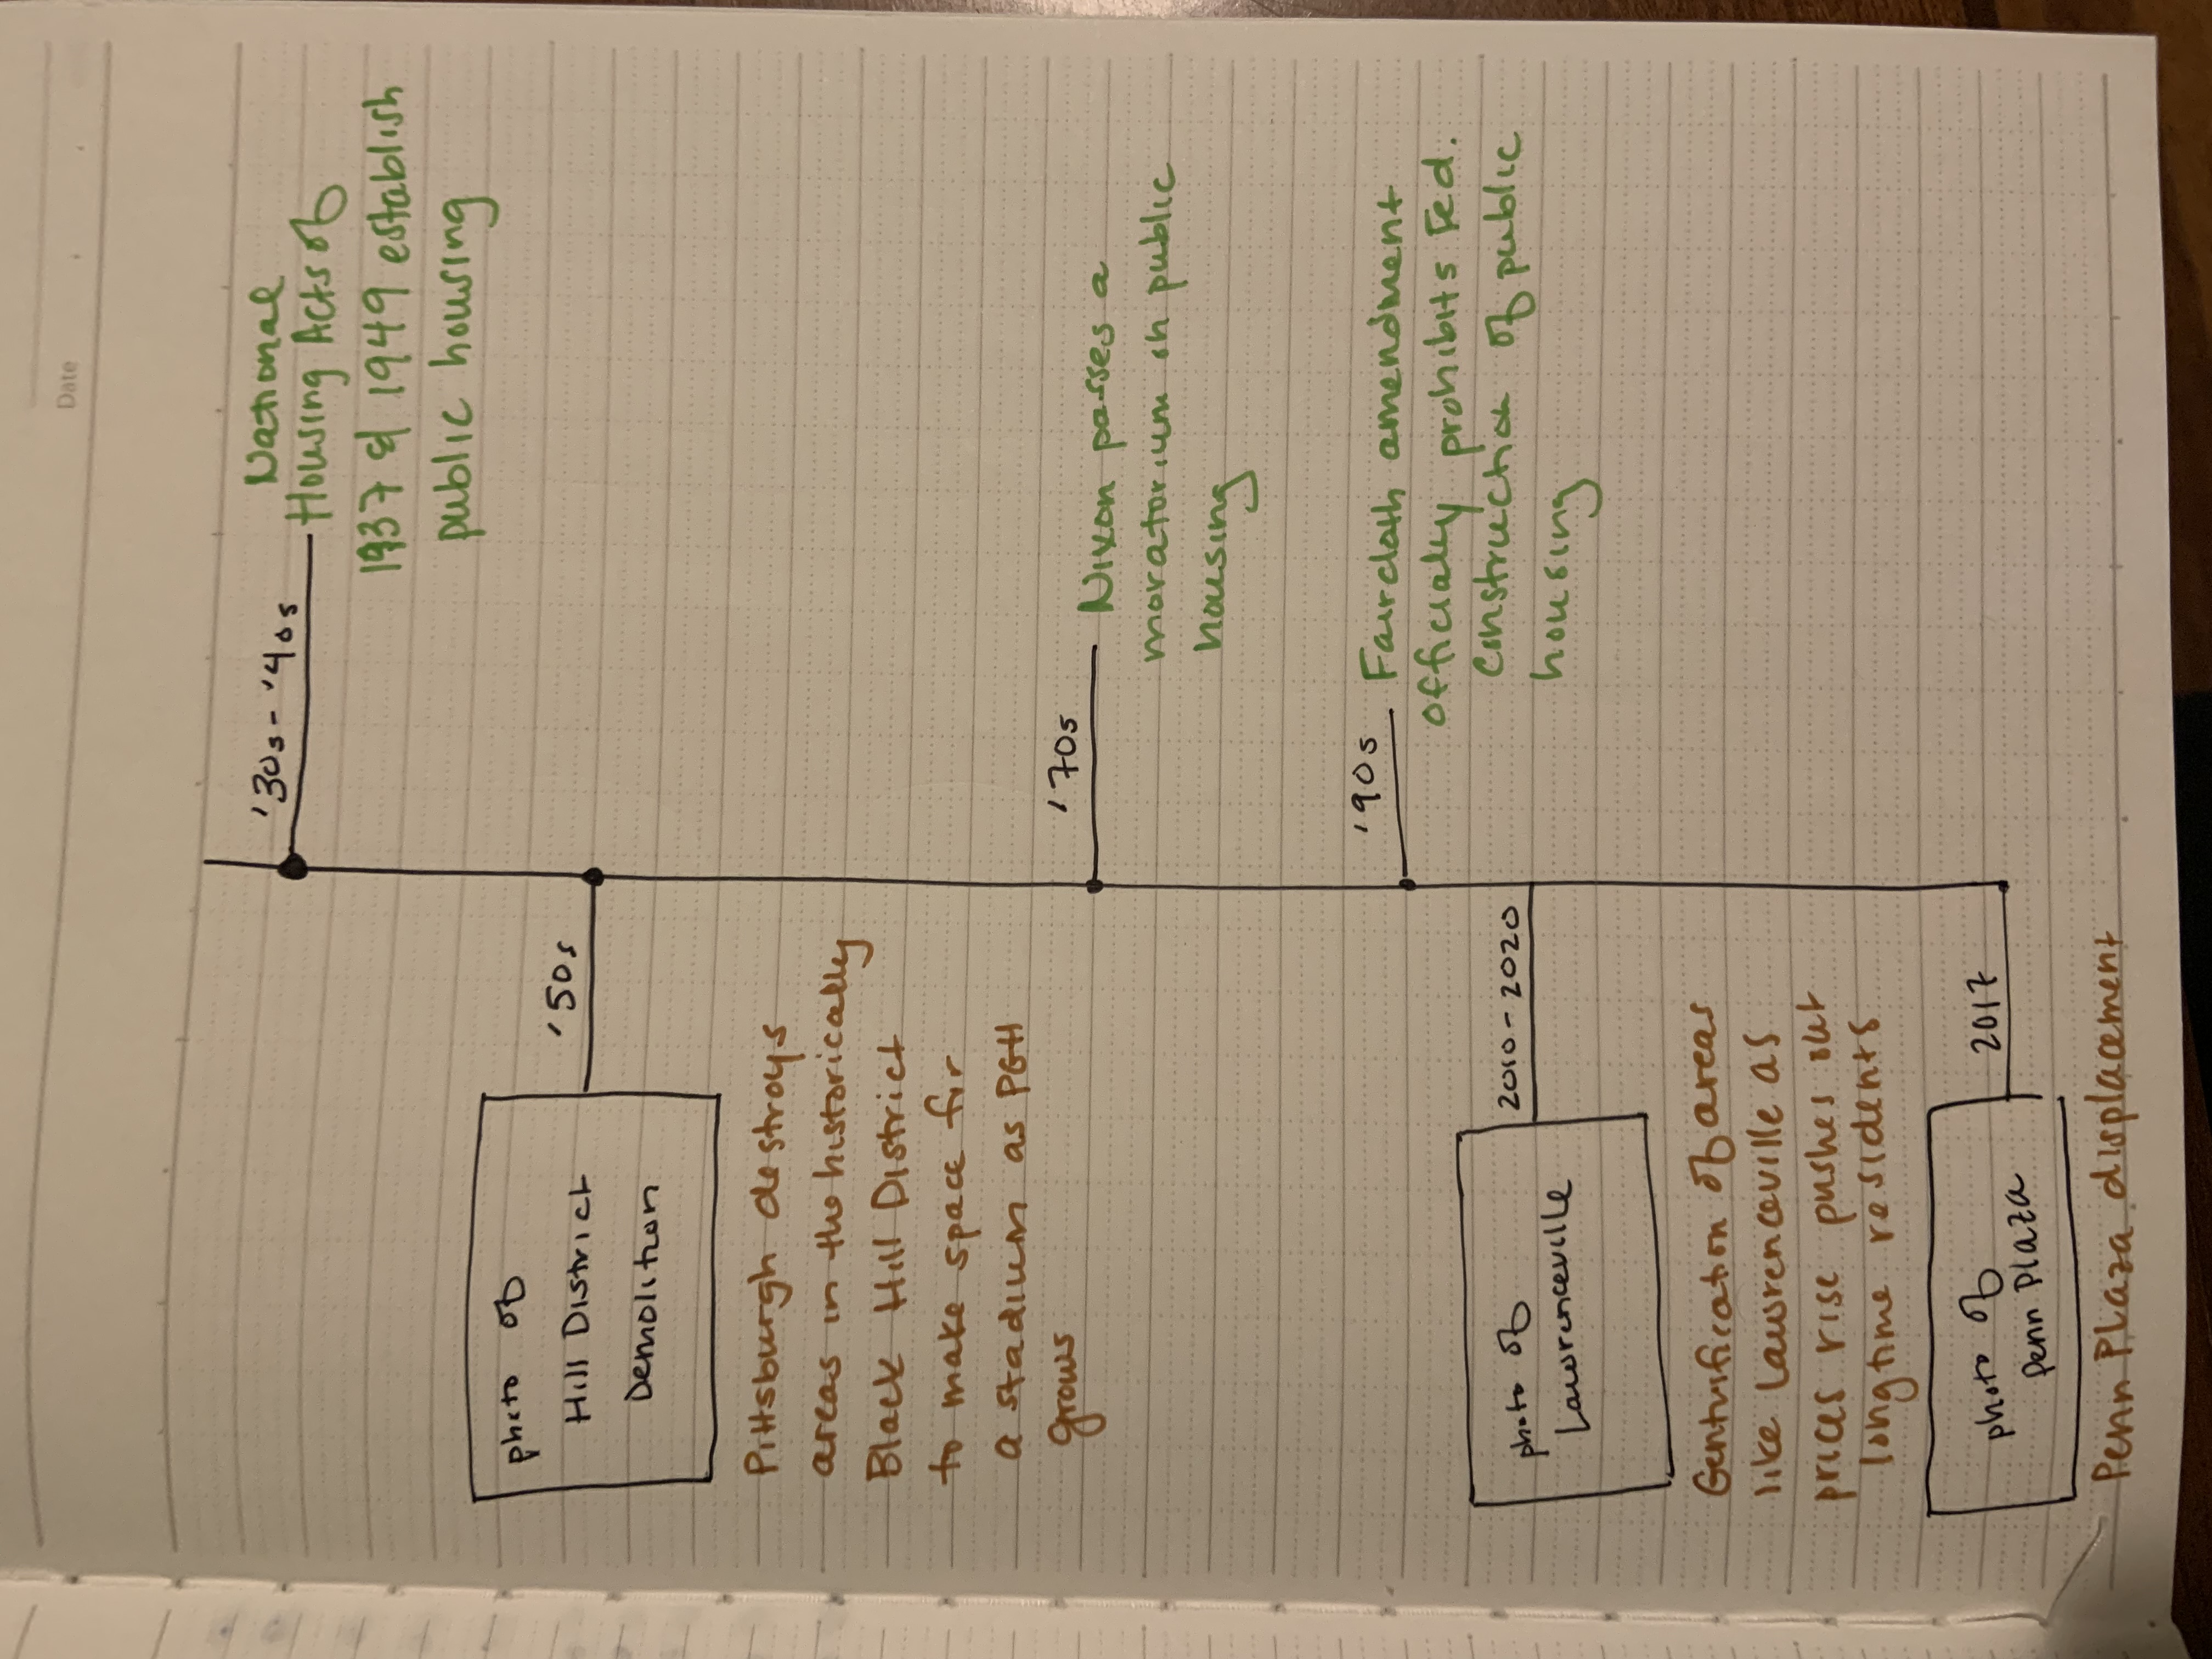 Date
'30s - '40s
National
Housing Acts of
1937 & 1949 establish
public housing
photo of
Hill District
Demolition
'50s
Pittsburgh destroys
areas in the historically
Black Hill District
to make space for
a stadium as PGH
grows
'70s
Nixon passes a
moratorium on public
housing
'90s
Faircloth amendment
officially prohibits Fed.
construction of public
housing
photo of
Lawrenceville
2010 - 2020
Gentrification of areas
like Lawrenceville as
prices rise pushes out
longtime residents
photo of
Penn Plaza
2017
Penn Plaza displacement